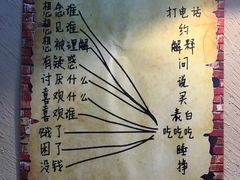 想念谁
想见谁
想被理解
有疑惑
讨厌什么
喜欢什么
喜欢谁
饿了
困了
没钱
打电话
约
解释
问
说
买
表白
吃吃吃
睡
挣